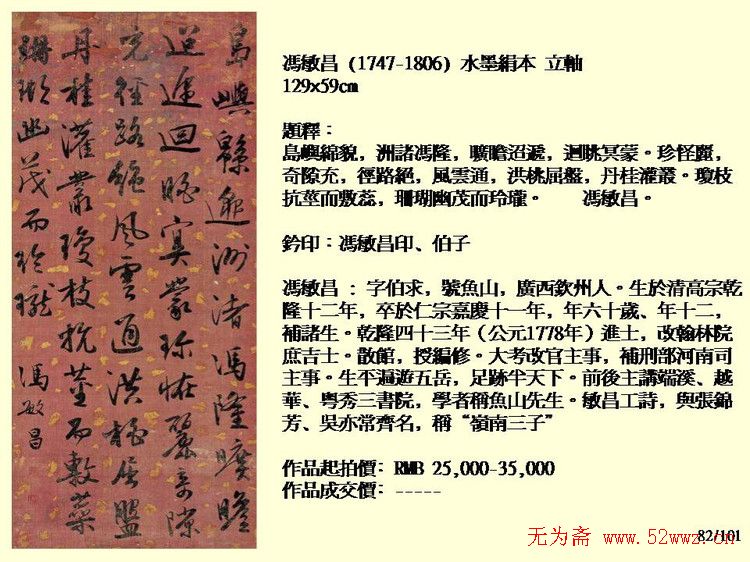 島嶼緜邈洲渚馮隆曠瞻
迢遞迴眺冥蒙珍怪麗奇隙
充徑路絕風雲通洪桃屈盤
丹桂灌叢瓊枝抗莖而敷蘂
珊瑚幽茂而玲瓏 馮敏昌
馮敏昌 (1747-1806) 水墨絹本 立軸
129x59cm
題釋：
島嶼綿貌，洲諸馮隆，曠瞻迢遞，迴眺冥蒙。珍怪麗，
奇隙充，徑路絕，風雲通，洪桃屈盤，丹桂灌叢。瓊枝
抗莖而敷蕊，珊瑚幽茂而玲瓏。 馮敏昌。
鈐印：馮敏昌印、伯子
馮敏昌 : 字伯求，號魚山，廣西欽州人。生於清高宗乾
隆十二年，卒於仁宗嘉慶十一年，年六十歲、年十二，
補諸生。乾隆四十三年（公元1778年）進士，改翰林院
庶吉士。散館，授編修。大考改官主事，補刑部河南司
主事。生平遍遊五岳，足跡半天下。前後主講端溪、越
華、粤秀三書院，學者稱魚山先生。敏昌工詩，與張錦
芳、吴亦常齊名，稱“嶺南三子”
作品起拍價: RMB 25,000-35,000
作品成交價: -----
82/101
无为斋 www.52wwz.cn